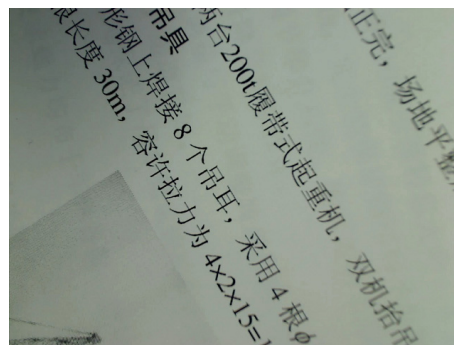 正完，场地平整
两台200t履带式起重机，双机抬吊
吊具
形钢上焊接8个吊耳，采用4根ϕ
根长度30m，容许拉力为4×2×15=